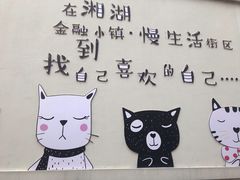 在湘湖
金融小镇·慢生活街区
找到自己喜欢的自己....